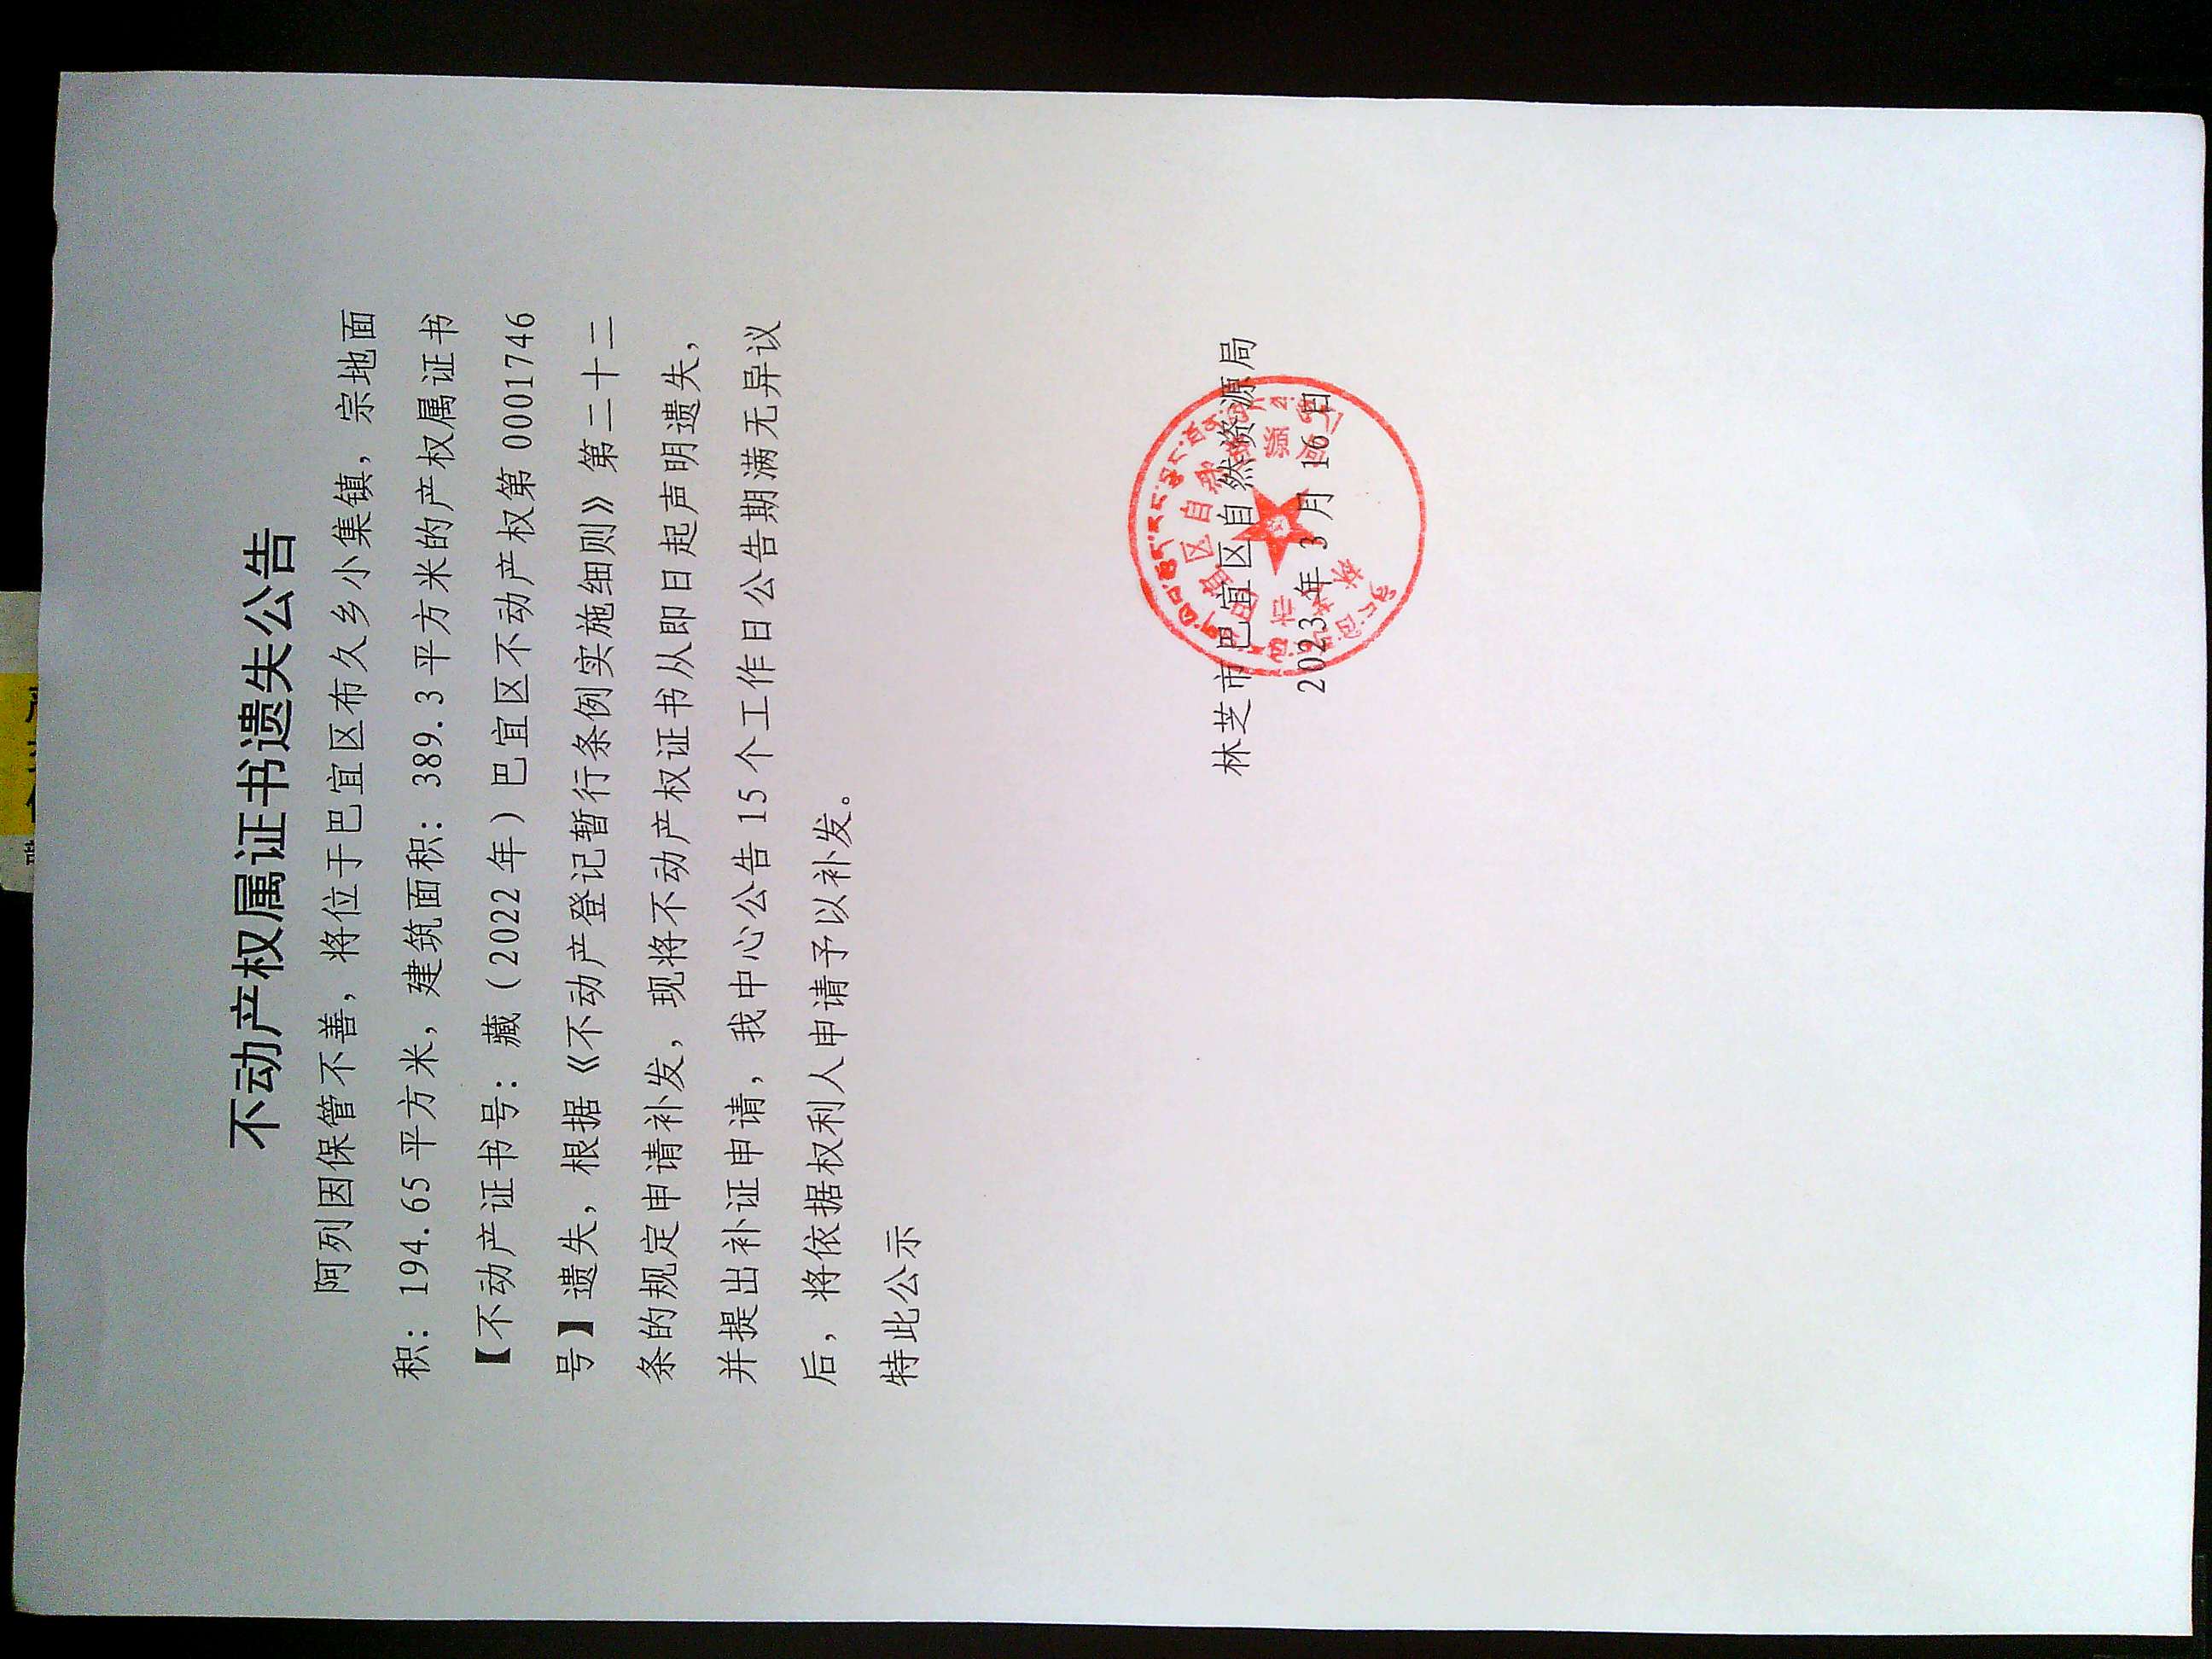 不动产权属证书遗失公告
阿列因保管不善，将位于巴宜区布久乡小集镇，宗地面
积：194.65平方米，建筑面积：389.3平方米的产权属证书
【不动产证书号：藏（2022年）巴宜区不动产权第0001746
号】遗失，根据《不动产登记暂行条例实施细则》第二十二
条的规定申请补发，现将不动产权证书从即日起声明遗失，
并提出补证申请，我中心公告15个工作日公告期满无异议
后，将依据权利人申请予以补发。
特此公示
林芝市巴宜区自然资源局
2023年3月16日
林芝市巴宜区自然资源局